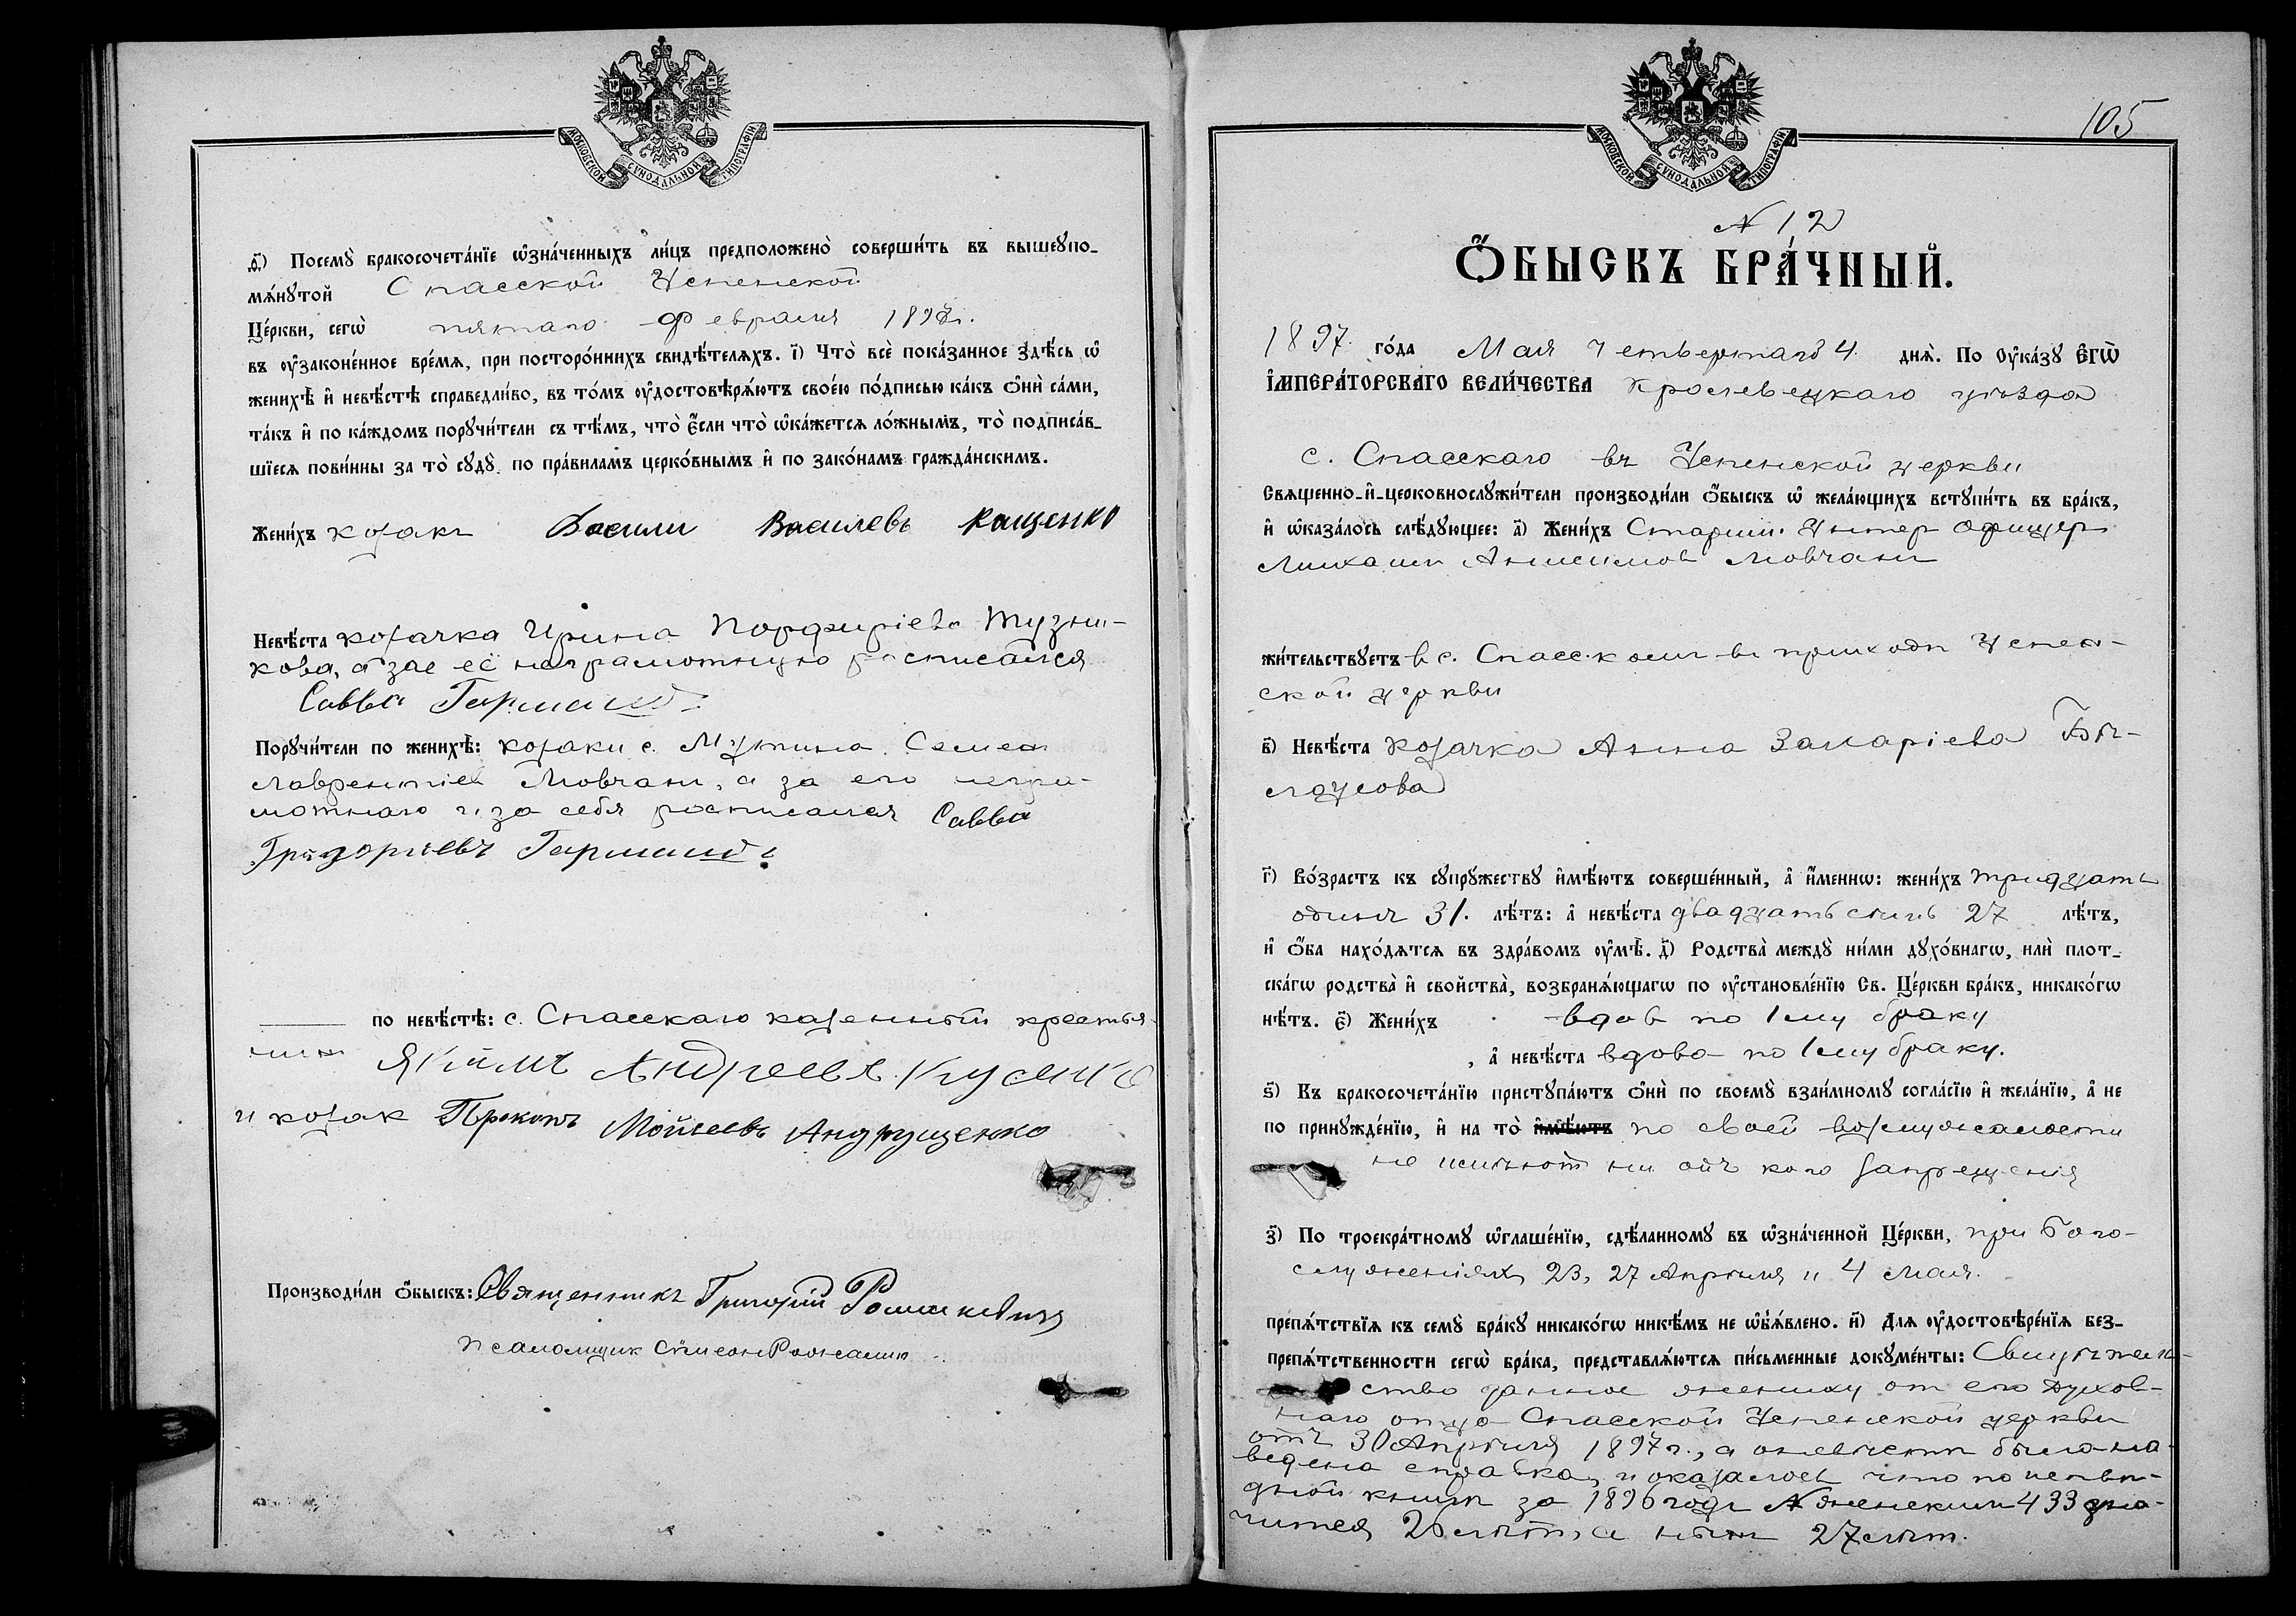 МОСКОВСКОЙ СѴНОДАЛЬНОЙ ТИПОГРАФІИ
д҃і) Посемꙋ̀ бракосочета́нїе ѡ҆зна́ченныхъ ли́цъ предположено̀ соверши́ть въ вышеꙋпо-
мѧ́нꙋтой Спасской Успенской
Це́ркви, сегѡ̀ пятаго февраля 1897г.
въ ᲂу҆законе́нное вре́мѧ, при посторо́ннихъ свидѣ́телѧхъ. і҃) Что̀ всѐ пока́занное здѣ́сь ѡ҆
женихѣ̀ и҆ невѣ́стѣ справедли́во, въ то́мъ ᲂу҆достовѣрѧ́ютъ свое́ю по́дписью ка́къ ѻ҆нѝ са́ми,
та́къ и҆ по ка́ждомъ порꙋчи́тели съ тѣ́мъ, что̀ є҆́сли что̀ ѡ҆ка́жетсѧ ло́жнымъ, то̀ подписа́в-
шїесѧ пови́нны за то̀ сꙋдꙋ̀ по пра́виламъ церко́внымъ и҆ по зако́намъ гражда́нскимъ.
Жени́хъ козакъ Васили Василевъ Кащенко
Невѣ́ста козачка Ирина Порфиріева Тузни-
кова, а зае её неграмотную росписался
Савва Гармаш
Порꙋчи́тели по женихѣ̀: козаки с. Мутина Семен
Лаврентіев Мовчанъ, а за его негра-
мотнаго и за себя росписался Савва
Григоріевъ Гармаш
по невѣ́стѣ: с. Спасскаго казенный крестья-
нин Якимъ Андреевъ
и козак Прокопъ Мойсеевъ Андрущенко
Производи́ли ѻ҆́быскъ: Священникъ Григорій Ромашкевичъ
Псаломщик Симеон
105
МОСКОВСКОЙ СѴНОДАЛЬНОЙ ТИПОГРАФІИ
N 12
Ѻ҆́БЫСКЪ БРА́ЧНЫЙ.
1897. го́да Мая четвертаго 4. днѧ̀. По Оу҆ка́зꙋ Є҆ГѠ̀
І҆МПЕРА́ТОРСКАГО ВЕЛИ́ЧЕСТВА Кролевецкаго уѣзда
с. Спасскаго въ Успенской церкви
Свѧщенно-и҆-церковнослꙋжи́тели производи́ли ѻ҆́быскъ ѡ҆ жела́ющихъ встꙋпи́ть въ бра́къ,
и҆ ѡ҆каза́лось слѣ́дꙋющее: а҃) Жени́хъ Старшій Унтер офицер
Михаил Анисимов Мовчанъ
жи́тельствꙋетъ в с. Спасском въ приходѣ Успен-
ской церкви
в҃) Невѣ́ста козачка Анна Захаріева Бѣ-
лоусова
г҃) Во́зрастъ къ сꙋпрꙋ́жествꙋ и҆мѣ́ютъ соверше́нный, а҆ и҆́меннѡ: жени́хъ тридцать
одинъ 31. лѣ́тъ: а҆ невѣ́ста двадцать семь 27 лѣ́тъ,
и҆ ѻ҆́ба нахо́дѧтсѧ въ здра́вомъ ᲂу҆мѣ̀. д҃) Родства̀ междꙋ̀ ни́ми дꙋхо́внагѡ, илѝ плот-
ска́гѡ родства̀ и҆ свойства̀, возбранѧ́ющагѡ по ᲂу҆становле́нїю Св. Це́ркви бра́къ, никако́гѡ
нѣ́тъ. є҃) Жени́хъ вдов по 1му браку
, а҆ невѣ́ста вдова по 1му браку.
ѕ҃) Къ бракосочета́нїю пристꙋпа́ютъ ѻ҆нѝ по своемꙋ̀ взаи́мномꙋ согла́сїю и҆ жела́нїю, а҆ не
по принꙋжде́нїю, и҆ на то̀ и҆мѣ́ютъ по своей возмужалости
не имѣют ни отъ кого запрещенія
з҃) По троекра́тномꙋ ѡ҆глаше́нїю, сдѣ́ланномꙋ въ ѡ҆зна́ченной Це́ркви, при Бого-
служеніяхъ 23, 27 Апрѣля и 4 мая.
препѧ́тствїѧ къ семꙋ̀ бра́кꙋ никако́гѡ никѣ́мъ не ѡ҆б̾ѧ́влено. и҃) Длѧ ᲂу҆достовѣре́нїѧ без-
препѧ́тственности сегѡ̀ бра́ка, представлѧ́ютсѧ пи́сьменные докꙋме́нты: Свидѣтель-
ство данное жениху от его Духов-
наго отца Спасской Успенской церкви
отъ 30 Апрѣля 1897 г., а о невѣстѣ была на-
ведена справка, и оказалось что по исповѣ-
дной книгѣ за 1896 годъ N женским 433 зна-
чится 26 лѣтъ, а нынѣ 27 лѣт.